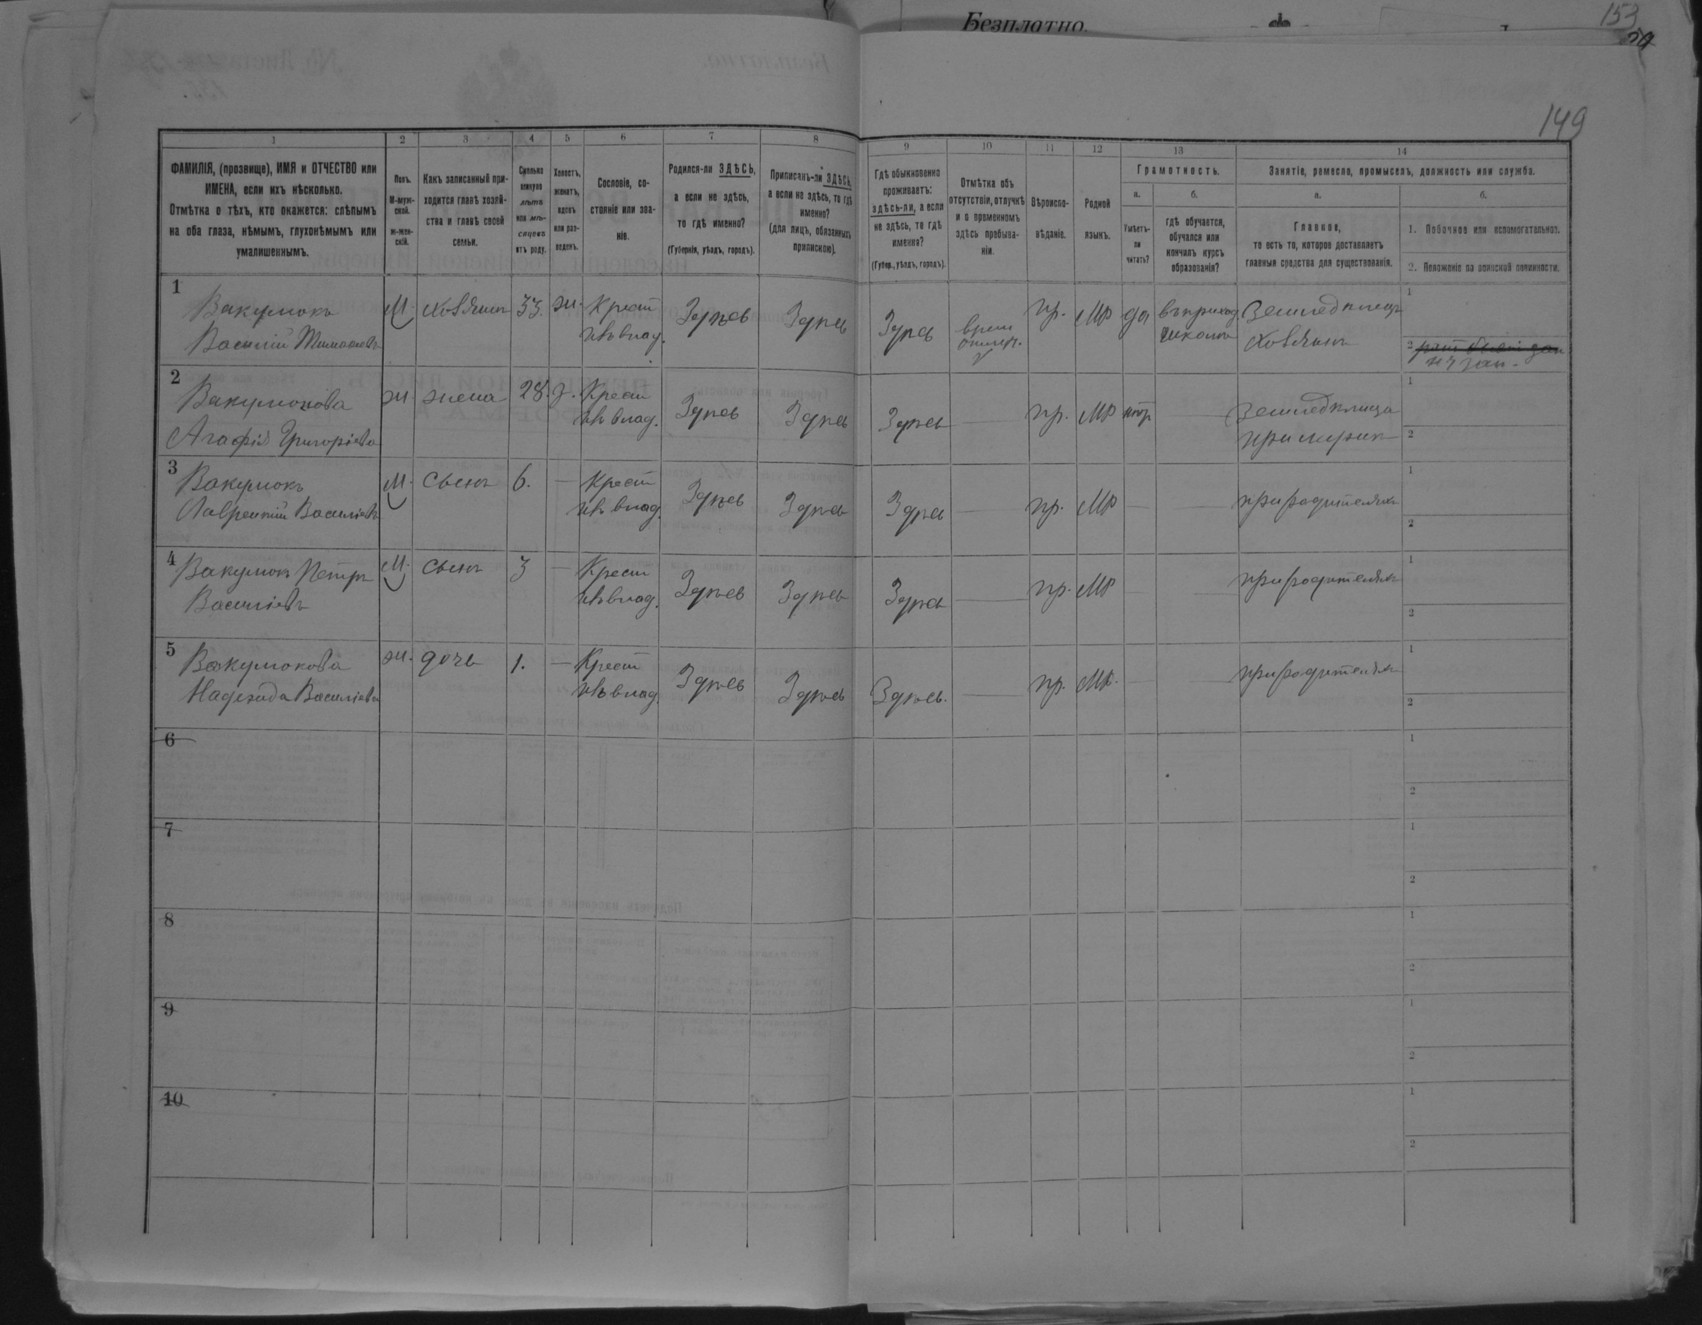 Безплатно.
153
149
1
2
3
4
5
6
7
8
9
10
11
12
13
14
ФАМИЛІЯ, (прозвище), ИМЯ и ОТЧЕСТВО или
ИМЕНА, если ихъ нѣсколько.
Отмѣтка о тѣхъ, кто окажется: слѣпымъ
на оба глаза, нѣмымъ, глухонѣмымъ или
умалишеннымъ.
Полъ.
М-муж-
ской.
ж-жен-
скій.
Какъ записанный при-
ходится главѣ хозяй-
ства и главѣ своей
семьи.
Сколько
минуло
лѣтъ
или мѣ-
сяцевъ
отъ роду.
Холостъ,
женатъ,
вдовъ
или раз-
веденъ.
Сословіе, со-
стояніе или зва-
ніе.
Родился-ли ЗДѢСЬ,
а если не здѣсь,
то гдѣ именно?
(Губернія, уѣздъ, городъ).
Приписанъ-ли ЗДѢСЬ,
а если не здѣсь, то гдѣ
именно?
(для лицъ, обязанныхъ
припискою).
Гдѣ обыкновенно
проживаетъ:
здѣсь-ли, а если
не здѣсь, то гдѣ
именно?
(Губер., уѣздъ, городъ).
Отмѣтка объ
отсутствіи, отлучкѣ
и о временномъ
здѣсь пребыва-
ніи.
Вѣроиспо-
вѣданіе.
Родной
языкъ.
Грамотность.
а.
Умѣетъ-
ли
читать?
б.
гдѣ обучается,
обучался или
кончилъ курсъ
образованія?
Занятіе, ремесло, промыселъ, должность или служба.
а.
Главное,
то есть то, которое доставляетъ
главныя средства для существованія.
б.
1. Побочное или вспомогательное.
2. Положеніе по воинской повинности.
1
Вакулюкъ
Василій Тимофеевъ
М. хозяинъ 33 ж. Крест.
изъ влад.
Здѣсь Здѣсь Здѣсь
врем.
отлуч.
пр. МР да въ приход.
школѣ
Земледѣлецъ
хозяинъ
1
2
не зап.
2
Вакулюкова
Агафія Григоріева
ж жена 28. з. Крест
изъ влад.
Здѣсь Здѣсь Здѣсь — пр. МР —
Земледѣлица
при мужѣ
1
2
3
Вакулюкъ
Лаврентій Василіевъ
М. сынъ 6. — Крест
изъ влад.
Здѣсь Здѣсь Здѣсь — пр. МР — — при родителяхъ
1
2
4
Вакулюкъ Петръ
Василіевъ
М. сынъ 3 — Крест
изъ влад.
Здѣсь Здѣсь Здѣсь — пр. МР — — при родителяхъ
1
2
5
Вакулюкова
Надежда Василіева
ж. дочь 1. — Крест
изъ влад.
Здѣсь Здѣсь Здѣсь. — пр. МР. — — при родителяхъ
1
2
6
1
2
7
1
2
8
1
2
9
1
2
10
1
2